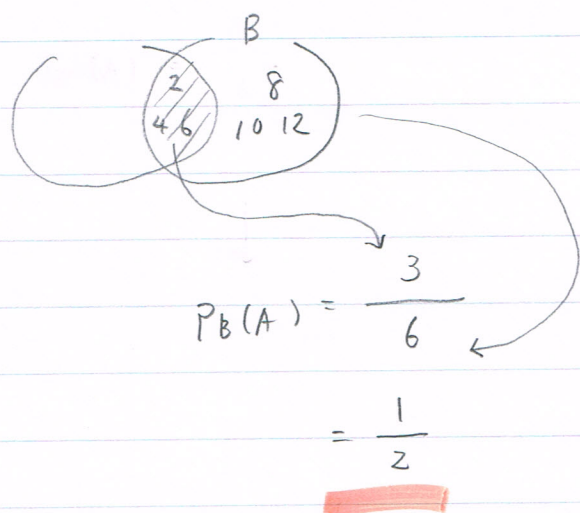 B
2 8
4 6 10 12
P_B(A) = 3/6
= 1/2